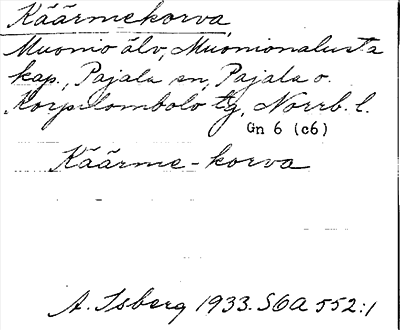 Käärmekorva,
Muonio älv, Muonionalusta
kap., Pajala sn, Pajala o.
Korpilombolo tg, Norrb. l.
Gn 6 (c6)
Käärme-korva
A. Isberg 1933. SOA 552:1